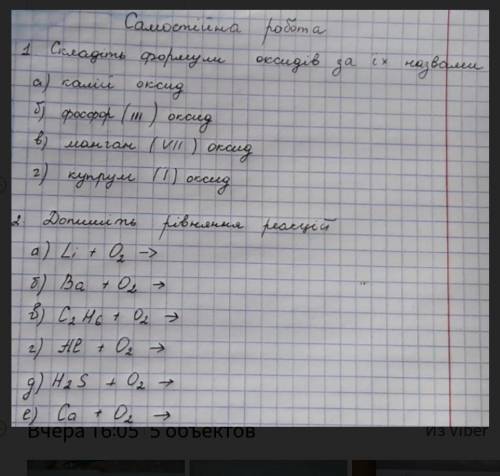 Самостійна робота
1 Складіть формули оксидів за їх назвами
а) калій оксид
б) фосфор (III) оксид
в) манган (VII) оксид
г) купрум (I) оксид
2. Допишіть рівняння реакцій
а) Li + O2 →
б) Ba + O2 →
в) C2H6 + O2 →
г) Al + O2 →
д) H2S + O2 →
е) Ca + O2 →
Вчера 16:05 5 объектов
Из Viber